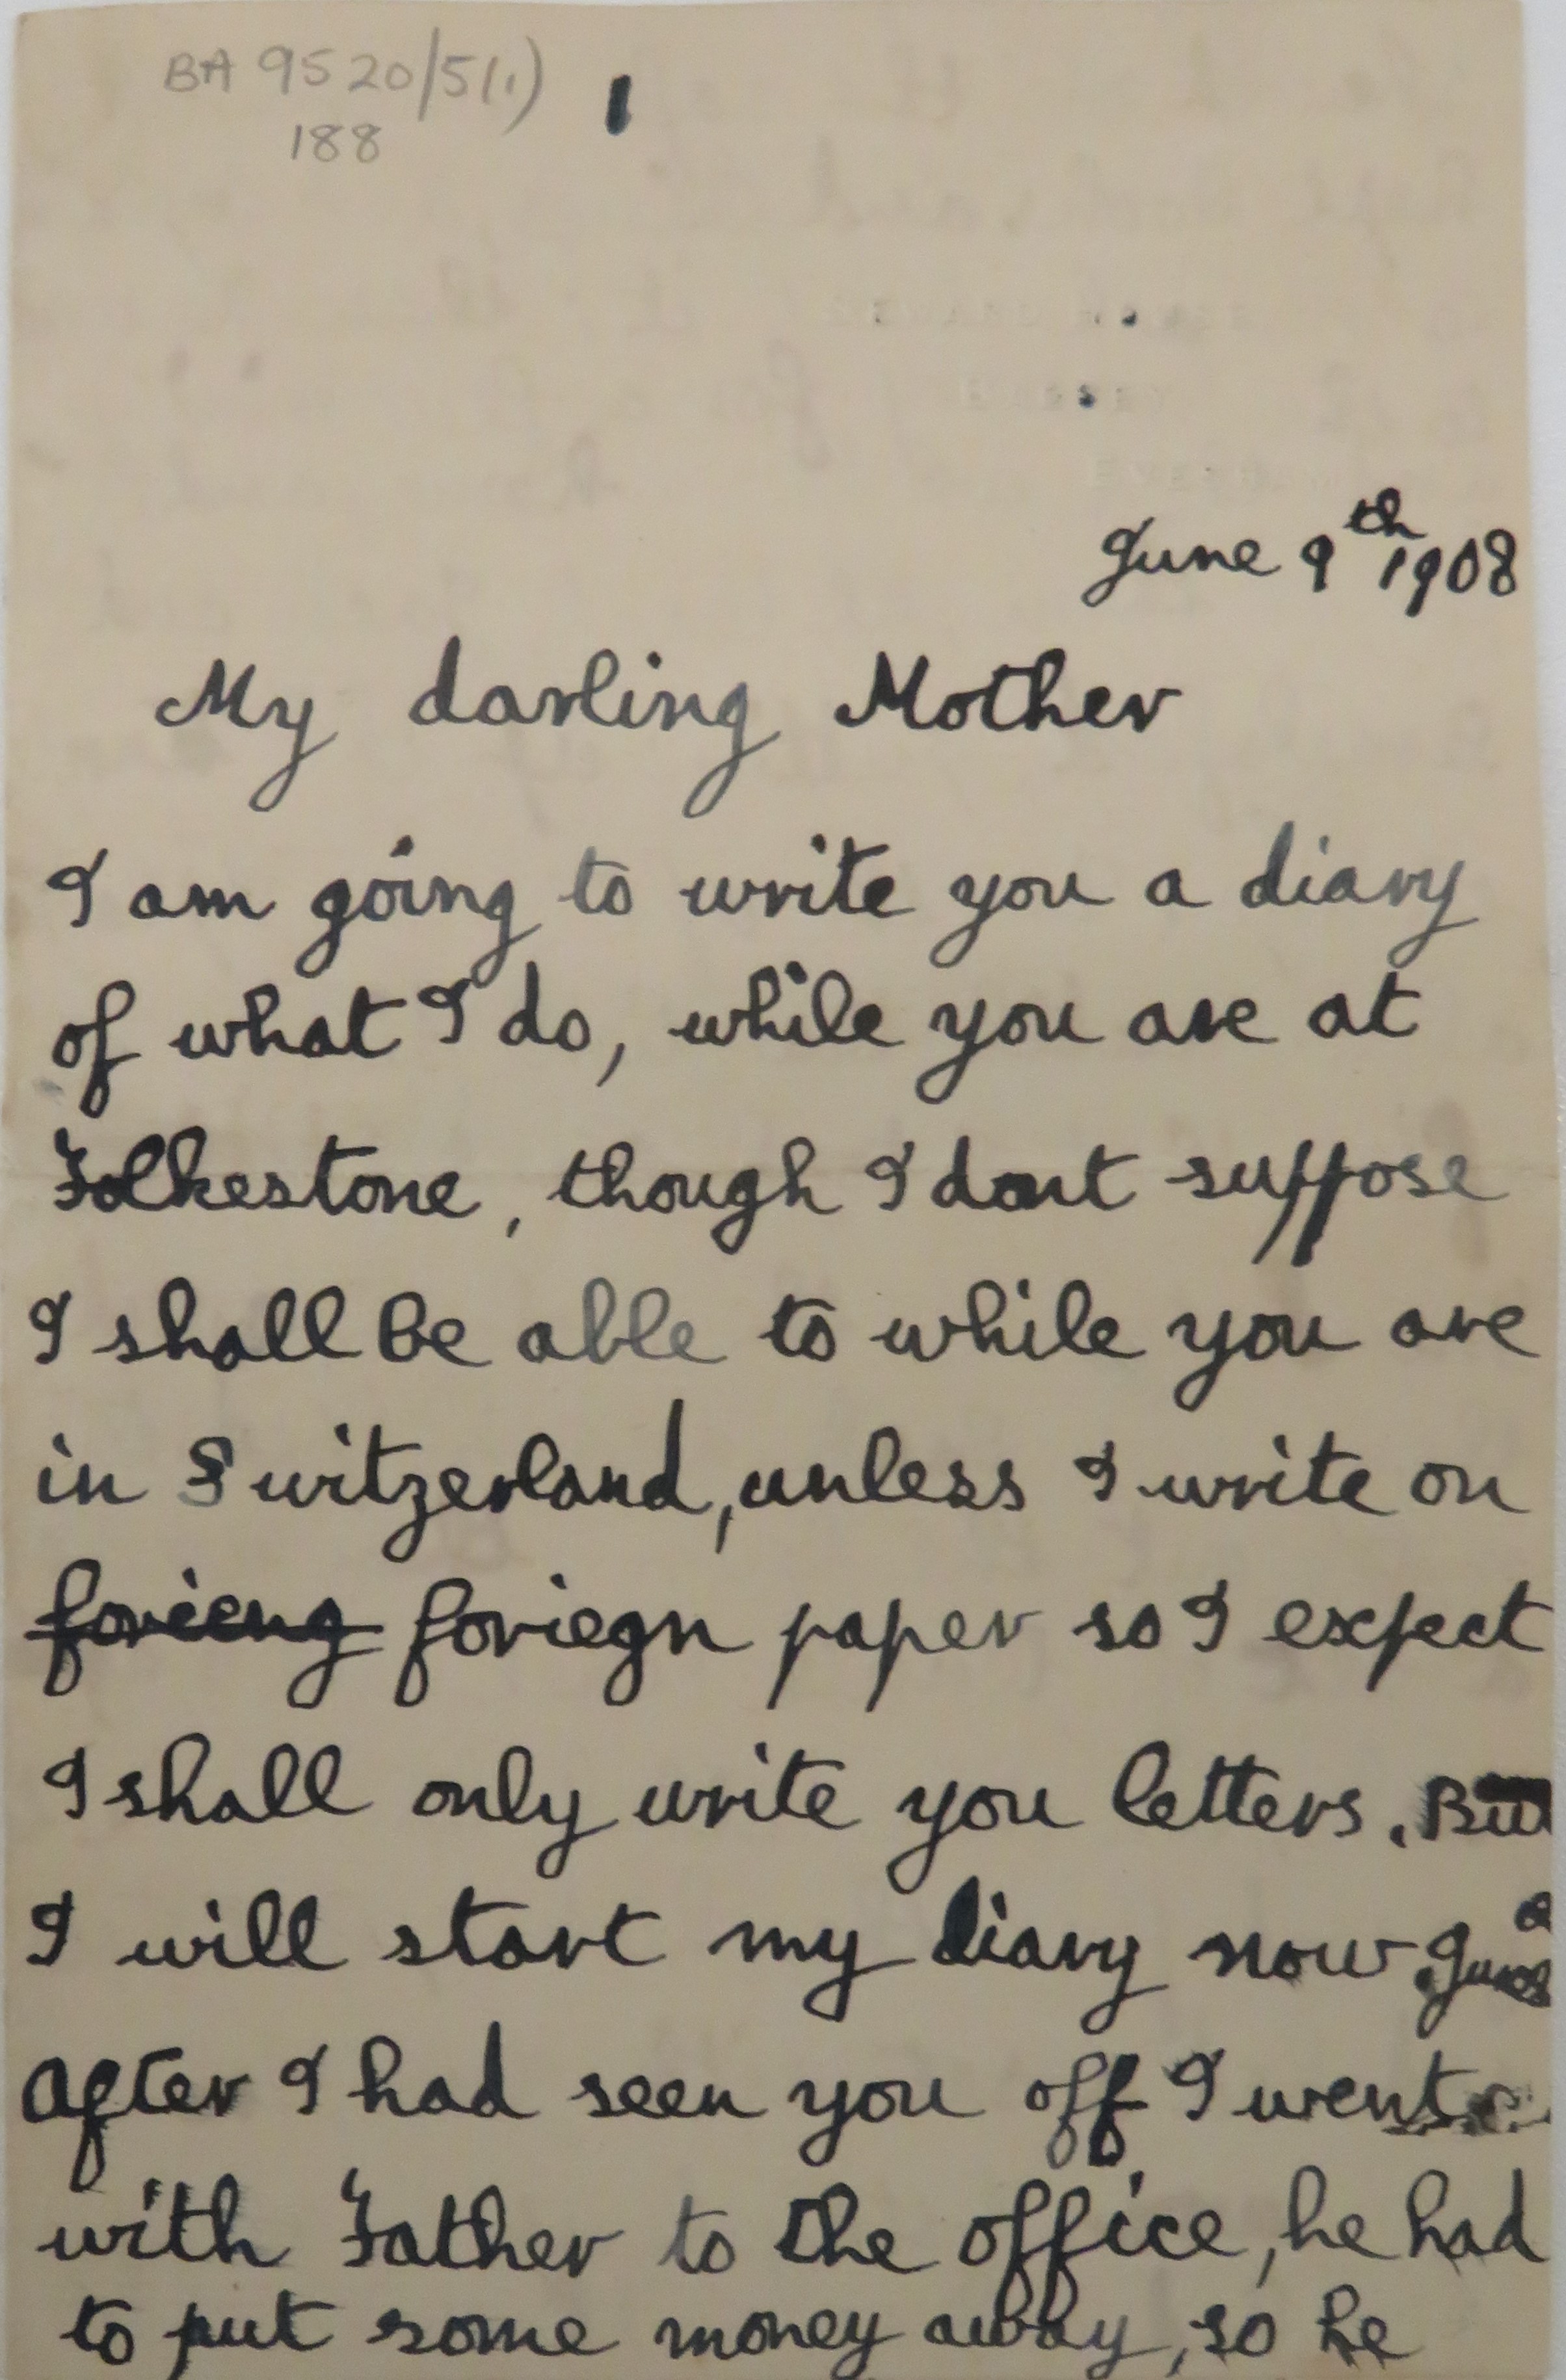 BA 9520/5(1) 1
188
June 9th 1908
My darling Mother
I am going to write you a diary
of what I do, while you are at
Folkestone, though I dont suppose
I shall be able to while you are
in Switzerland, unless I write on
forieng foriegn paper so I expect
I shall only write you letters. But
I will start my diary now.
After I had seen you off I went
with Father to the office, he had
to put some money away, so he